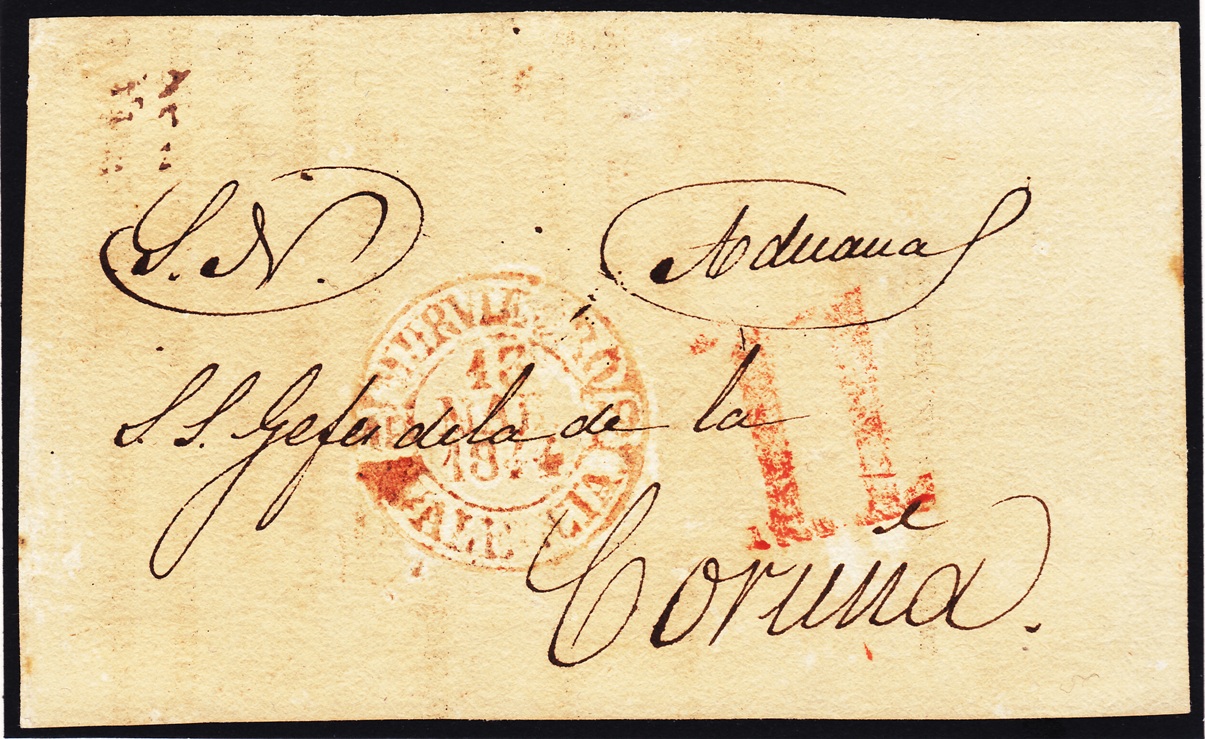 S. N. Aduana
S. S. Gefes de la de la
Coruña.
13
MAR
184
11